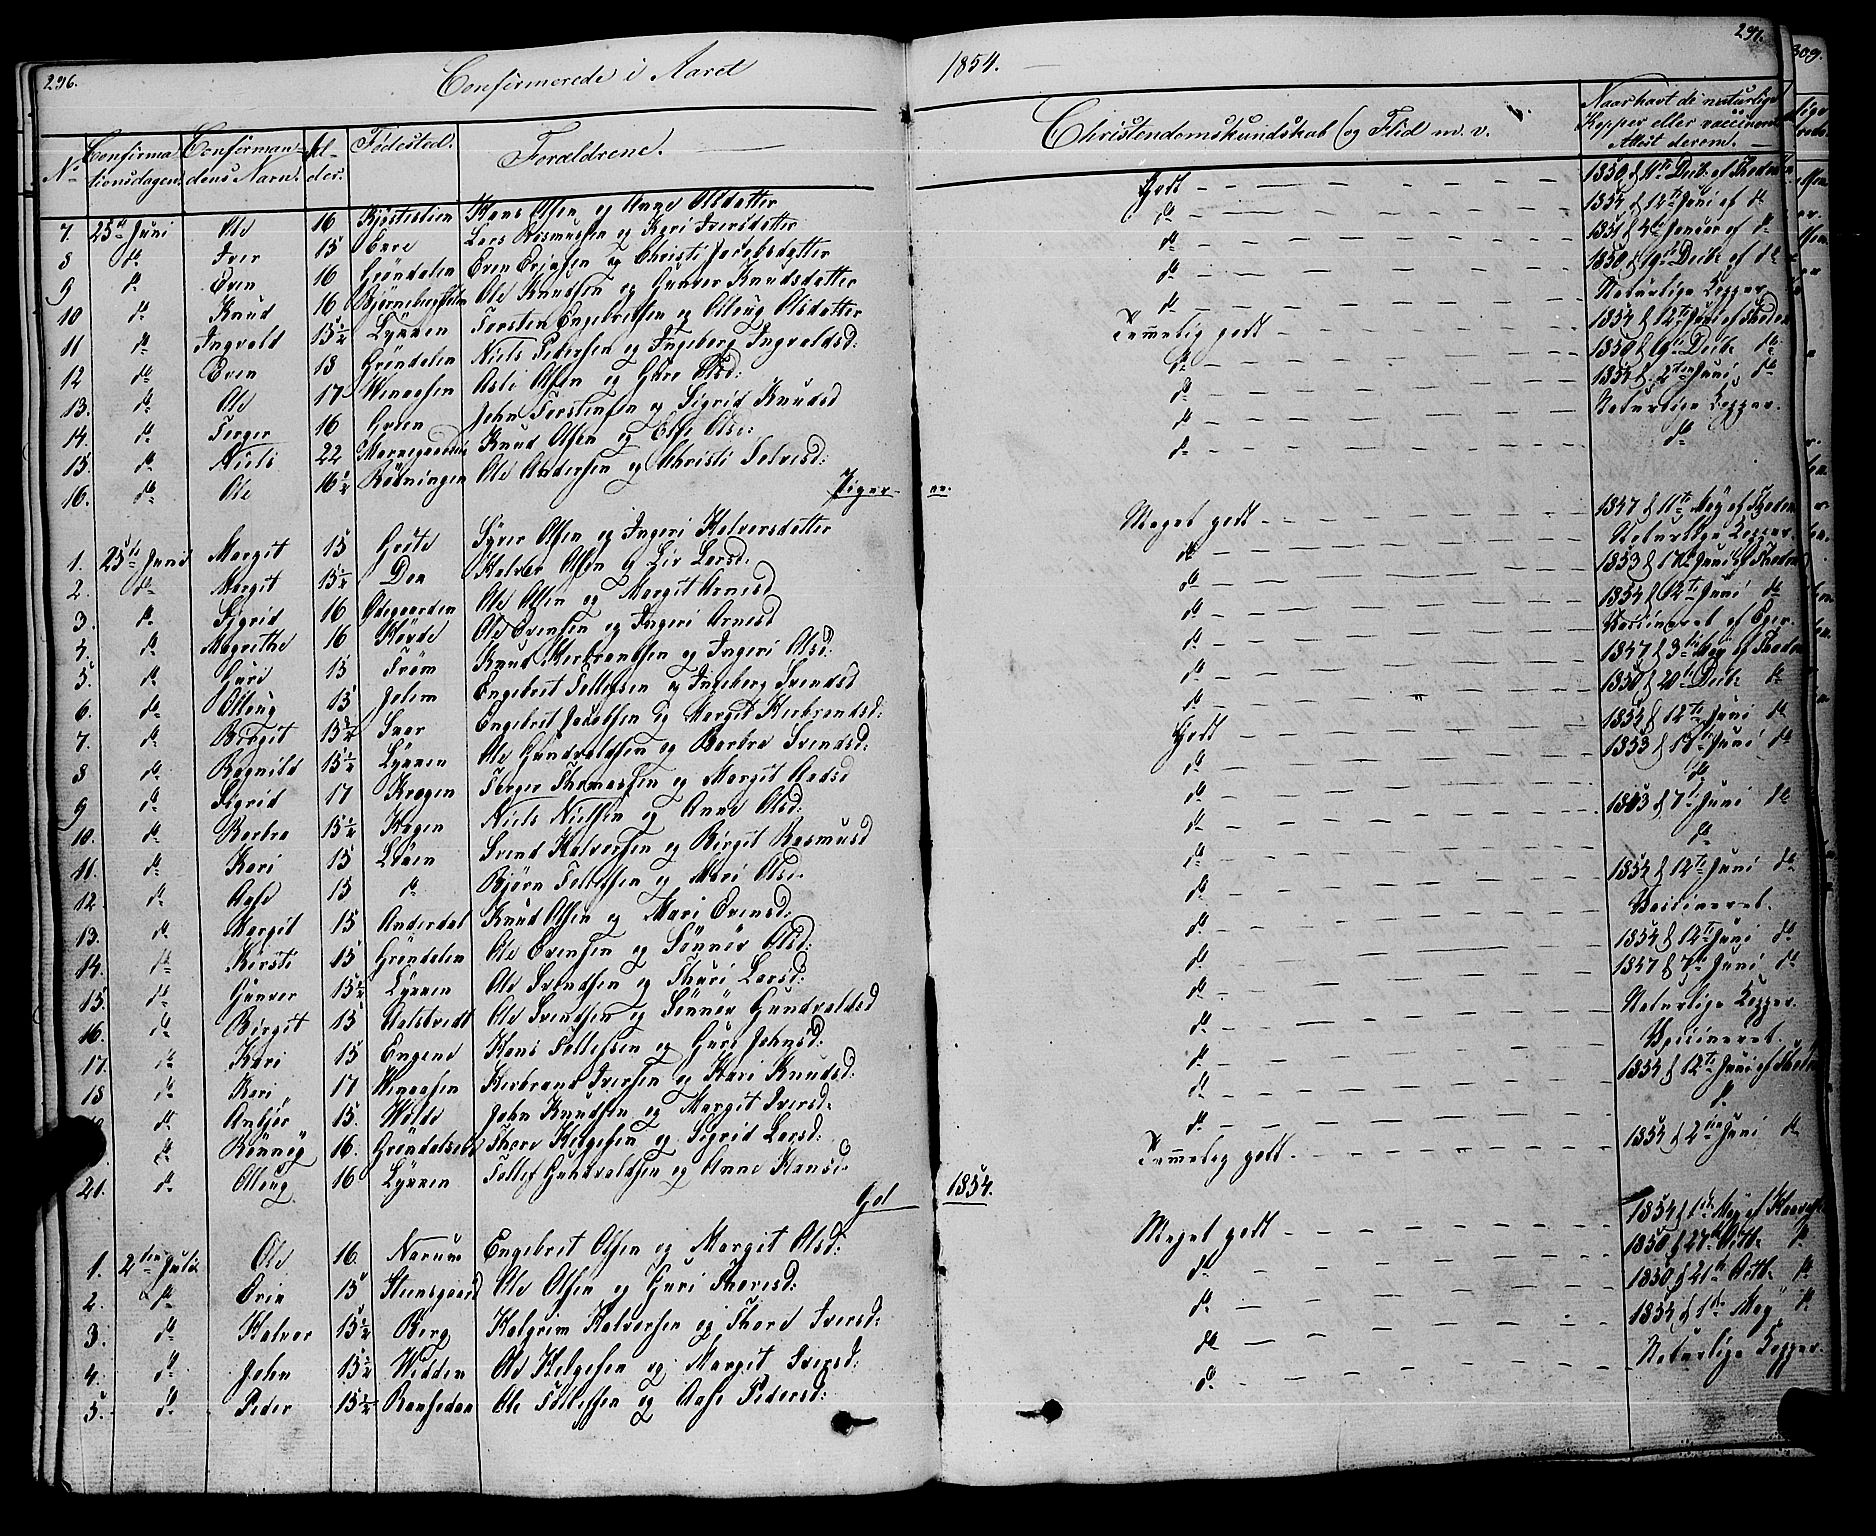 296. Confirmerede i Aaret 1854. 297.
No Confirmationsdagen. Confirmandens Navn. Alder. Fødested. Forældrene. Christendomskundskab (og Flid m. v. Naar havt de naturlige Kopper eller vaccineret Attest derom.
7. 25de Juni Ole 16 Hans Olsen og Anne Olsdatter Godt 1850 f Decbr af
8 do Iver 15 Lars Rasmussen og Kari Iversdatter do 1854 f 12te Juni af do
9 do Even 16 Grøndalen Even Erichsen og Christi Jacobsdatter do 1851 f 4de Januar af do
10 do Knud 16 Ole Knudsen og Gunvor Knudsdatter do 1850 f 19de Decbr af do
11 do Ingvald 15½ Lÿkken Torsten Engebretsen og Olloug Olsdatter do Naturlige Kopper
12 do Even 18 Grøndalen Niels Pedersen og Ingeborg Ingvaldsd: Temmelig godt 1854 f 12te Juni af
13. do Ole 17 Asle Olsen og Guro Olsd: do 1850 f 19de Decbr do
14. do Terger 16 John Torstensen og Sigrid Knudsd do 1854 f 2den Juni do
15. do Niels 22 Knud Olsen og Olsd: do Naturlige Kopper.
16. do Ole 16½ Rødningen Ole Andersen og Christi Tolvesd: do do
Piger.
1. 25de Juni Margit 15 Grøte Syver Olsen og Ingeri Halvorsdatter Meget godt 1847 f 11te Maÿ af
2. do Margit 15½ Halvor Olsen og Liv Larsd: do Naturlige Kopper.
3. do Sigrid 16 Ødegaarden Ole Olsen og Margit Arnesd do 1853 f 17de Juni af
4. do Margrethe 16 Ole Evensen og Ingeri Arnesd do 1854 f 12te Juni do
5. do Guro 15 Trøm Knud Herbrandsen og Ingeri Olsd: do Vaccineret af Eger.
6. do Olloug 15 Jelem Engebret Tollefsen og Ingeborg Svendsd do 1847 f 3die Maÿ af
7. do Birgit 15½ Engebret Jacobsen og Margit Herbrandsd: do 1850 f 20de Decbr do
8 do Ragnild 15½ Lÿkken Ole Gundvaldsen og Barbra Svendsd: Godt 1854 f 12te Juni do
9 do Sigrid 17 Kragen Terger Thomassen og Margit Aadsd do 1853 f 17de Juni do
10. do Barbra 15½ Hagen Niels Nielsen og Anne Olsd: do do
11. do Kari 15 Svend Halvorsen og Birgit Rasmusd do 1843 f 7de Juni do
12. do Aase 15 do Bjørn Tollefsen og Mari Olsd. do do
13. do Margit 15 Anderdal Knud Olsen og Mari Evensd: do 1854 f 12te Juni do
14. do Kirsti 15 Grøndalen Ole Evensen og Sønnøv Olsd: do Vaccineret.
15. do Gunvor 15½ Lÿkken Ole Svendsen og Thuri Larsd: do 1854 f 12te Juni do
16. do Birgit 15 Ole Svendsen og Sønnøv Gundvaldsd do 1847 f 7de Juni do
17. do Kari 15 Engene Hans Tollefsen og Guri Johnsd: do Naturlige Kopper.
18 do Kari 17 Herbrand Iversen og Kari Knudsd: do Vaccineret.
do Anbjør 15. Wolde John Knudsen og Margit Iversd: do 1854 f 12te Juni af
do Rønnøg 16. Thore Helgesen og Sigrid Larsd: do do
21. do Olloug 16 Lÿkken Tollef Gundvaldsen og Anne Hansd. Temmelig godt. 1854 f 2den Juni do
Gol 1854.
1. 2den Juli Ole 16. Narum Engebret Olsen og Margit Olsd: Meget godt 1854 f 1ste Maÿ af
2. do Erik 15 Steensgaard Ole Olsen og Guri Thoresd: do 1850 f 27de Octbr do
3. do Halvor 15½ Berg Halgrim Halvorsen og Thore Iversd: do 1850 f 21de Octbr do
4. do John 15½ Widden Ole Helgesen og Margit Iversd: do 1854 f 1ste Maÿ do
5. do Peder 15½ Ole Tollefsen og Aase Pedersd: do Naturlige Kopper.
309.